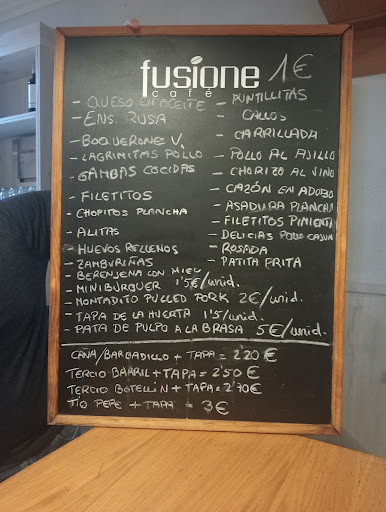 fusione
café
1€
- QUESO EN ACEITE
- ENS. RUSA
- BOQUERONES V.
- LAGRIMITAS POLLO
- GAMBAS COCIDAS
- FILETITOS
- CHOPITOS PLANCHA
- ALITAS
- HUEVOS RELLENOS
- ZAMBURIÑAS
- BERENJENA CON MIEL
- PUNTILLITAS
- CALLOS
- CARRILLADA
- POLLO AL AJILLO
- CHORIZO AL VINO
- CAZÓN EN ADOBO
- ASADURA PLANCHA
- FILETITOS PIMIENTA
- DELICIAS POLLO CAJUN
- ROSADA
- PATITA FRITA
- MINIBURGUER 1'5€/unid.
- MONTADITO PULLED PORK 2€/unid.
- TAPA DE LA HUERTA 1'5/unid.
- PATA DE PULPO A LA BRASA 5€/unid.
CAÑA/BARBADILLO + TAPA = 2'20 €
TERCIO BARRIL + TAPA = 2'50 €
TERCIO BOTELLIN + TAPA = 2'70€
TIO PEPE + TAPA = 3€